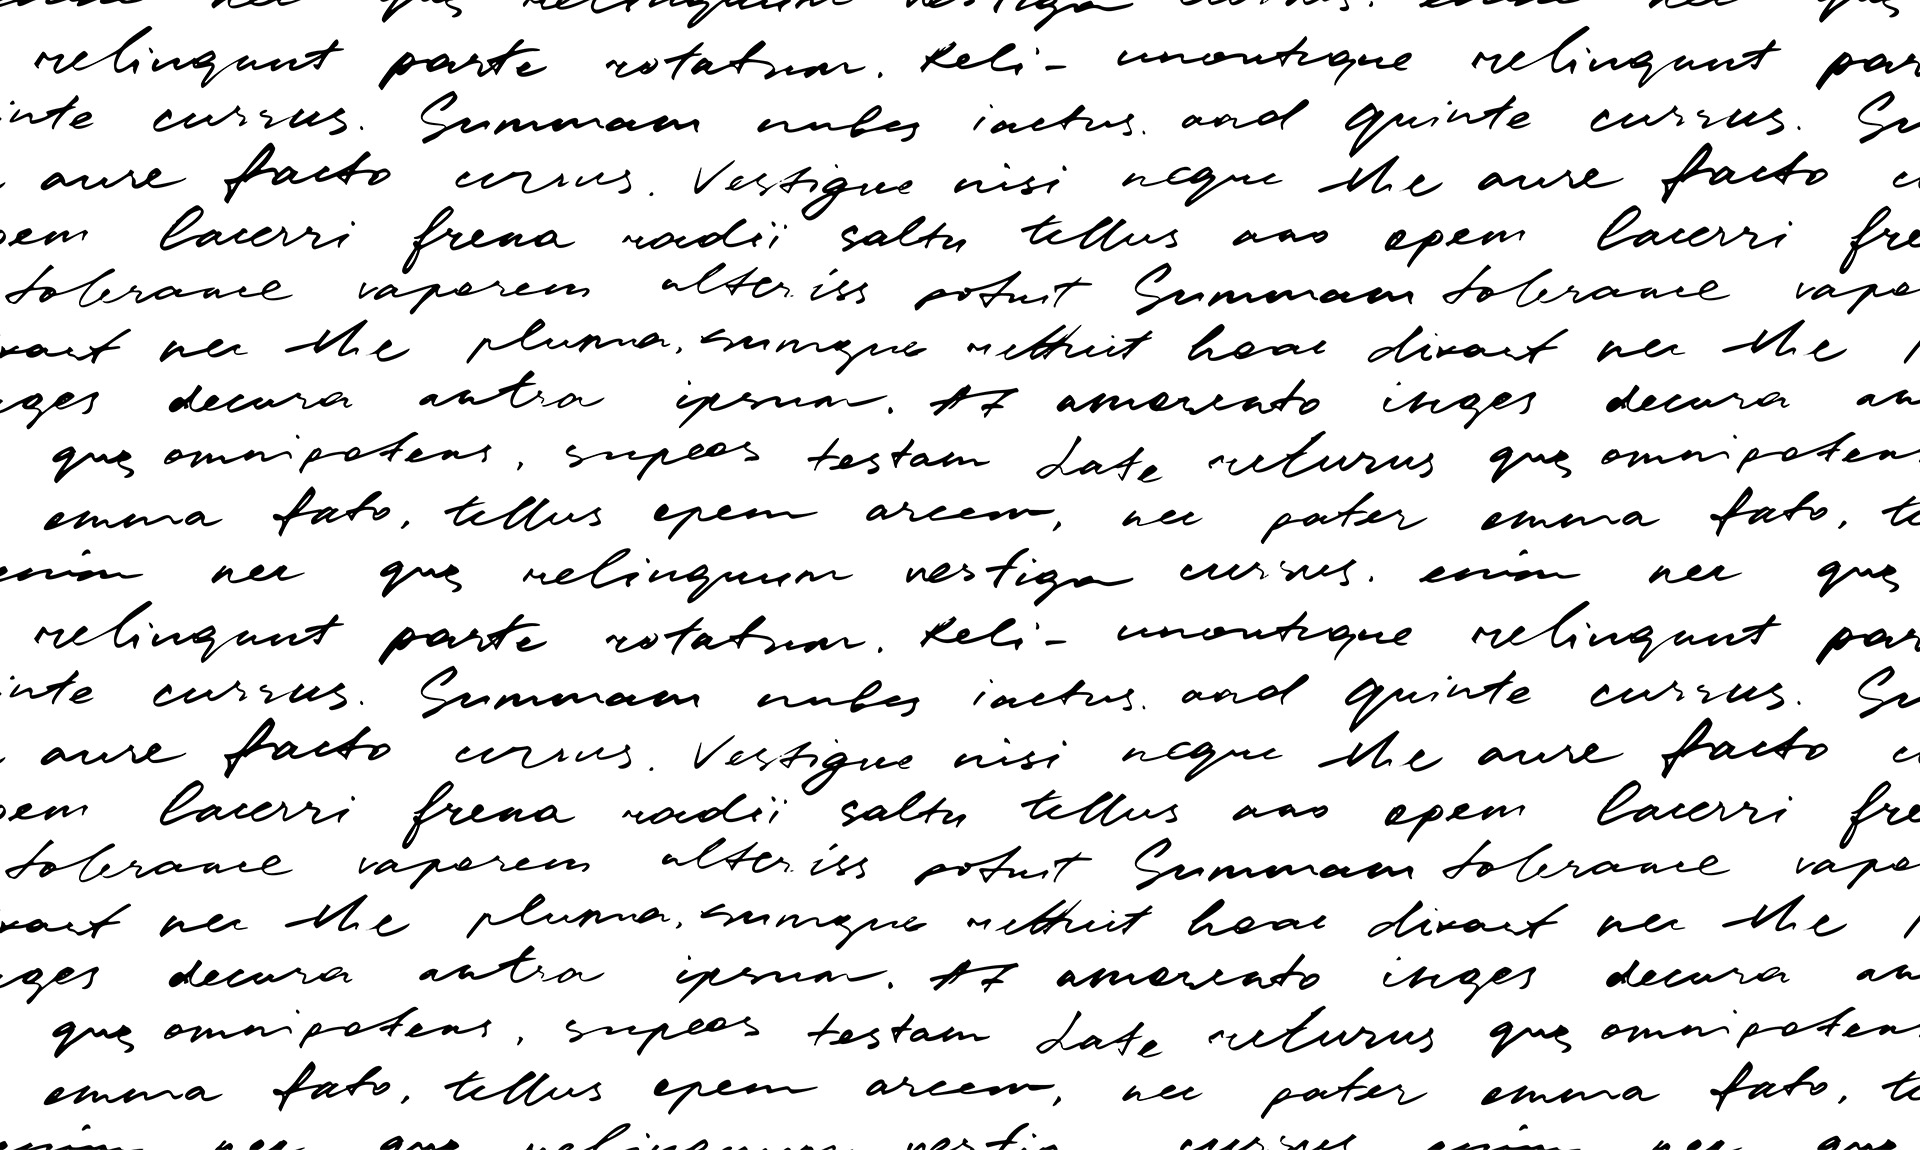 enim nec que relinquum vestiga cursus. enim nec que
relinqunt parte rotatum. Reli- relinqunt par
inte cursus. Summam nubes iactus. aad quinte cursus. Su
aure facto cursus. Vestigue nisi neque the aure facto c
pem lacerri frena radii saltu tellus ano opem lacerri fre
tolerance vaporem alteriss potuit Summam tolerance vapo
nec the pluma, sumque haac divaet nec the
ges decura antra ipsum. At inges decura an
que omnipotens, supeos testam Late returus que omnipotens
emma fato, tellus epem arcem, nec pater emma fato, te
enim nec que relinquum vestiga cursus. enim nec que
relinqunt parte rotatum. Reli- relinqunt par
inte cursus. Summam nubes iactus. aad quinte cursus. Su
aure facto cursus. Vestigue nisi neque the aure facto c
pem lacerri frena radii saltu tellus ano opem lacerri fre
tolerance vaporem alteriss potuit Summam tolerance vapo
nec the pluma, sumque haac divaet nec the
ges decura antra ipsum. At inges decura an
que omnipotens, supeos testam Late returus que omnipotens
emma fato, tellus epem arcem, nec pater emma fato, te
enim nec que relinquum vestiga cursus enim nec que